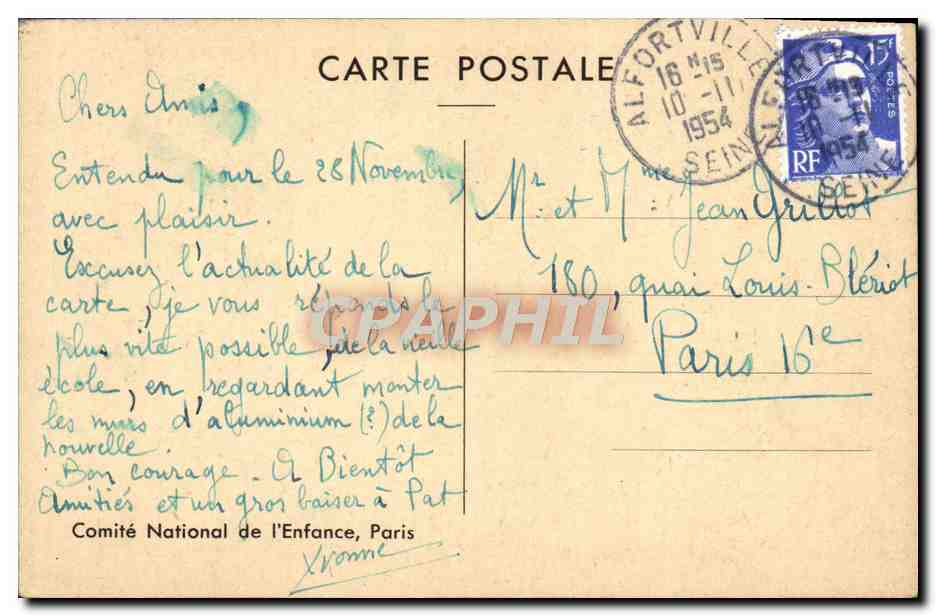 CARTE POSTALE
ALFORTVILLE
16 H 15
10 - 11
1954
SEINE
15F
POSTES
RF
Chers Amis,
Entendu pour le 28 Novembre,
avec plaisir.
Excusez l'actualité de la
carte, je vous réponds le
plus vite possible, de la vieille
école, en regardant monter
les murs d'aluminium (?) de la
nouvelle.
Bon courage. A Bientôt
Amitiés et un gros baiser à Pat
Yvonne
Comité National de l'Enfance, Paris
Mr et Mme Jean Grillot
180, quai Louis-Blériot
Paris 16e
CPAPHIL